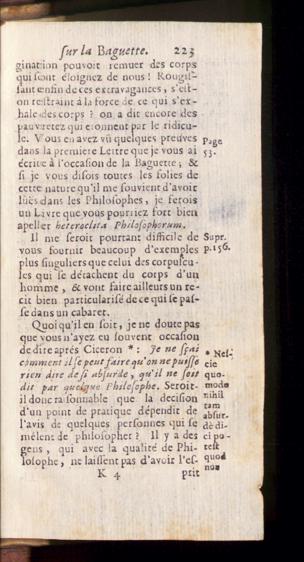 sur la Baguette. 223
gination pouvoit remuer des corps
qui sont éloignez de nous ! Rougis-
sant enfin de ces extravagances, s'est-
on restraint à la force de ce qui s'ex-
hale des corps ? on a dit encore des
pauvretez qui étonnent par le ridicu-
le. Vous en avez vû quelques preuves
dans la premiere Lettre que je vous ai
écrite à l'occasion de la Baguette, &
si je vous disois toutes les folies de
cette nature qu'il me souvient d'avoir
lûës dans les Philosophes, je ferois
un Livre que vous pourriez fort bien
apeller heteroclita Philosophorum.
Page
53.
Il me seroit pourtant difficile de
vous fournir beaucoup d'exemples
plus singuliers que celui des corpuscu-
les qui se détachent du corps d'un
homme, & vont faire ailleurs un re-
cit bien particularisé de ce qui se pas-
se dans un cabaret.
Supr.
p.156.
Quoi qu'il en soit, je ne doute pas
que vous n'ayez eu souvent occasion
de dire aprés Ciceron * : Je ne sçai
comment il se peut faire qu'on ne puisse
rien dire de si absurde, qu'il ne soit
dit par quelque Philosophe. Seroit-
il donc raisonnable que la decision
d'un point de pratique dépendit de
l'avis de quelques personnes qui se
mêlent de philosopher ? Il y a des
gens, qui avec la qualité de Phi-
losophe, ne laissent pas d'avoir l'es-
* Nes-
cio
quo-
modo
nihil
tam
absur-
dè di-
ci po-
test
quod
non
K 4 prit